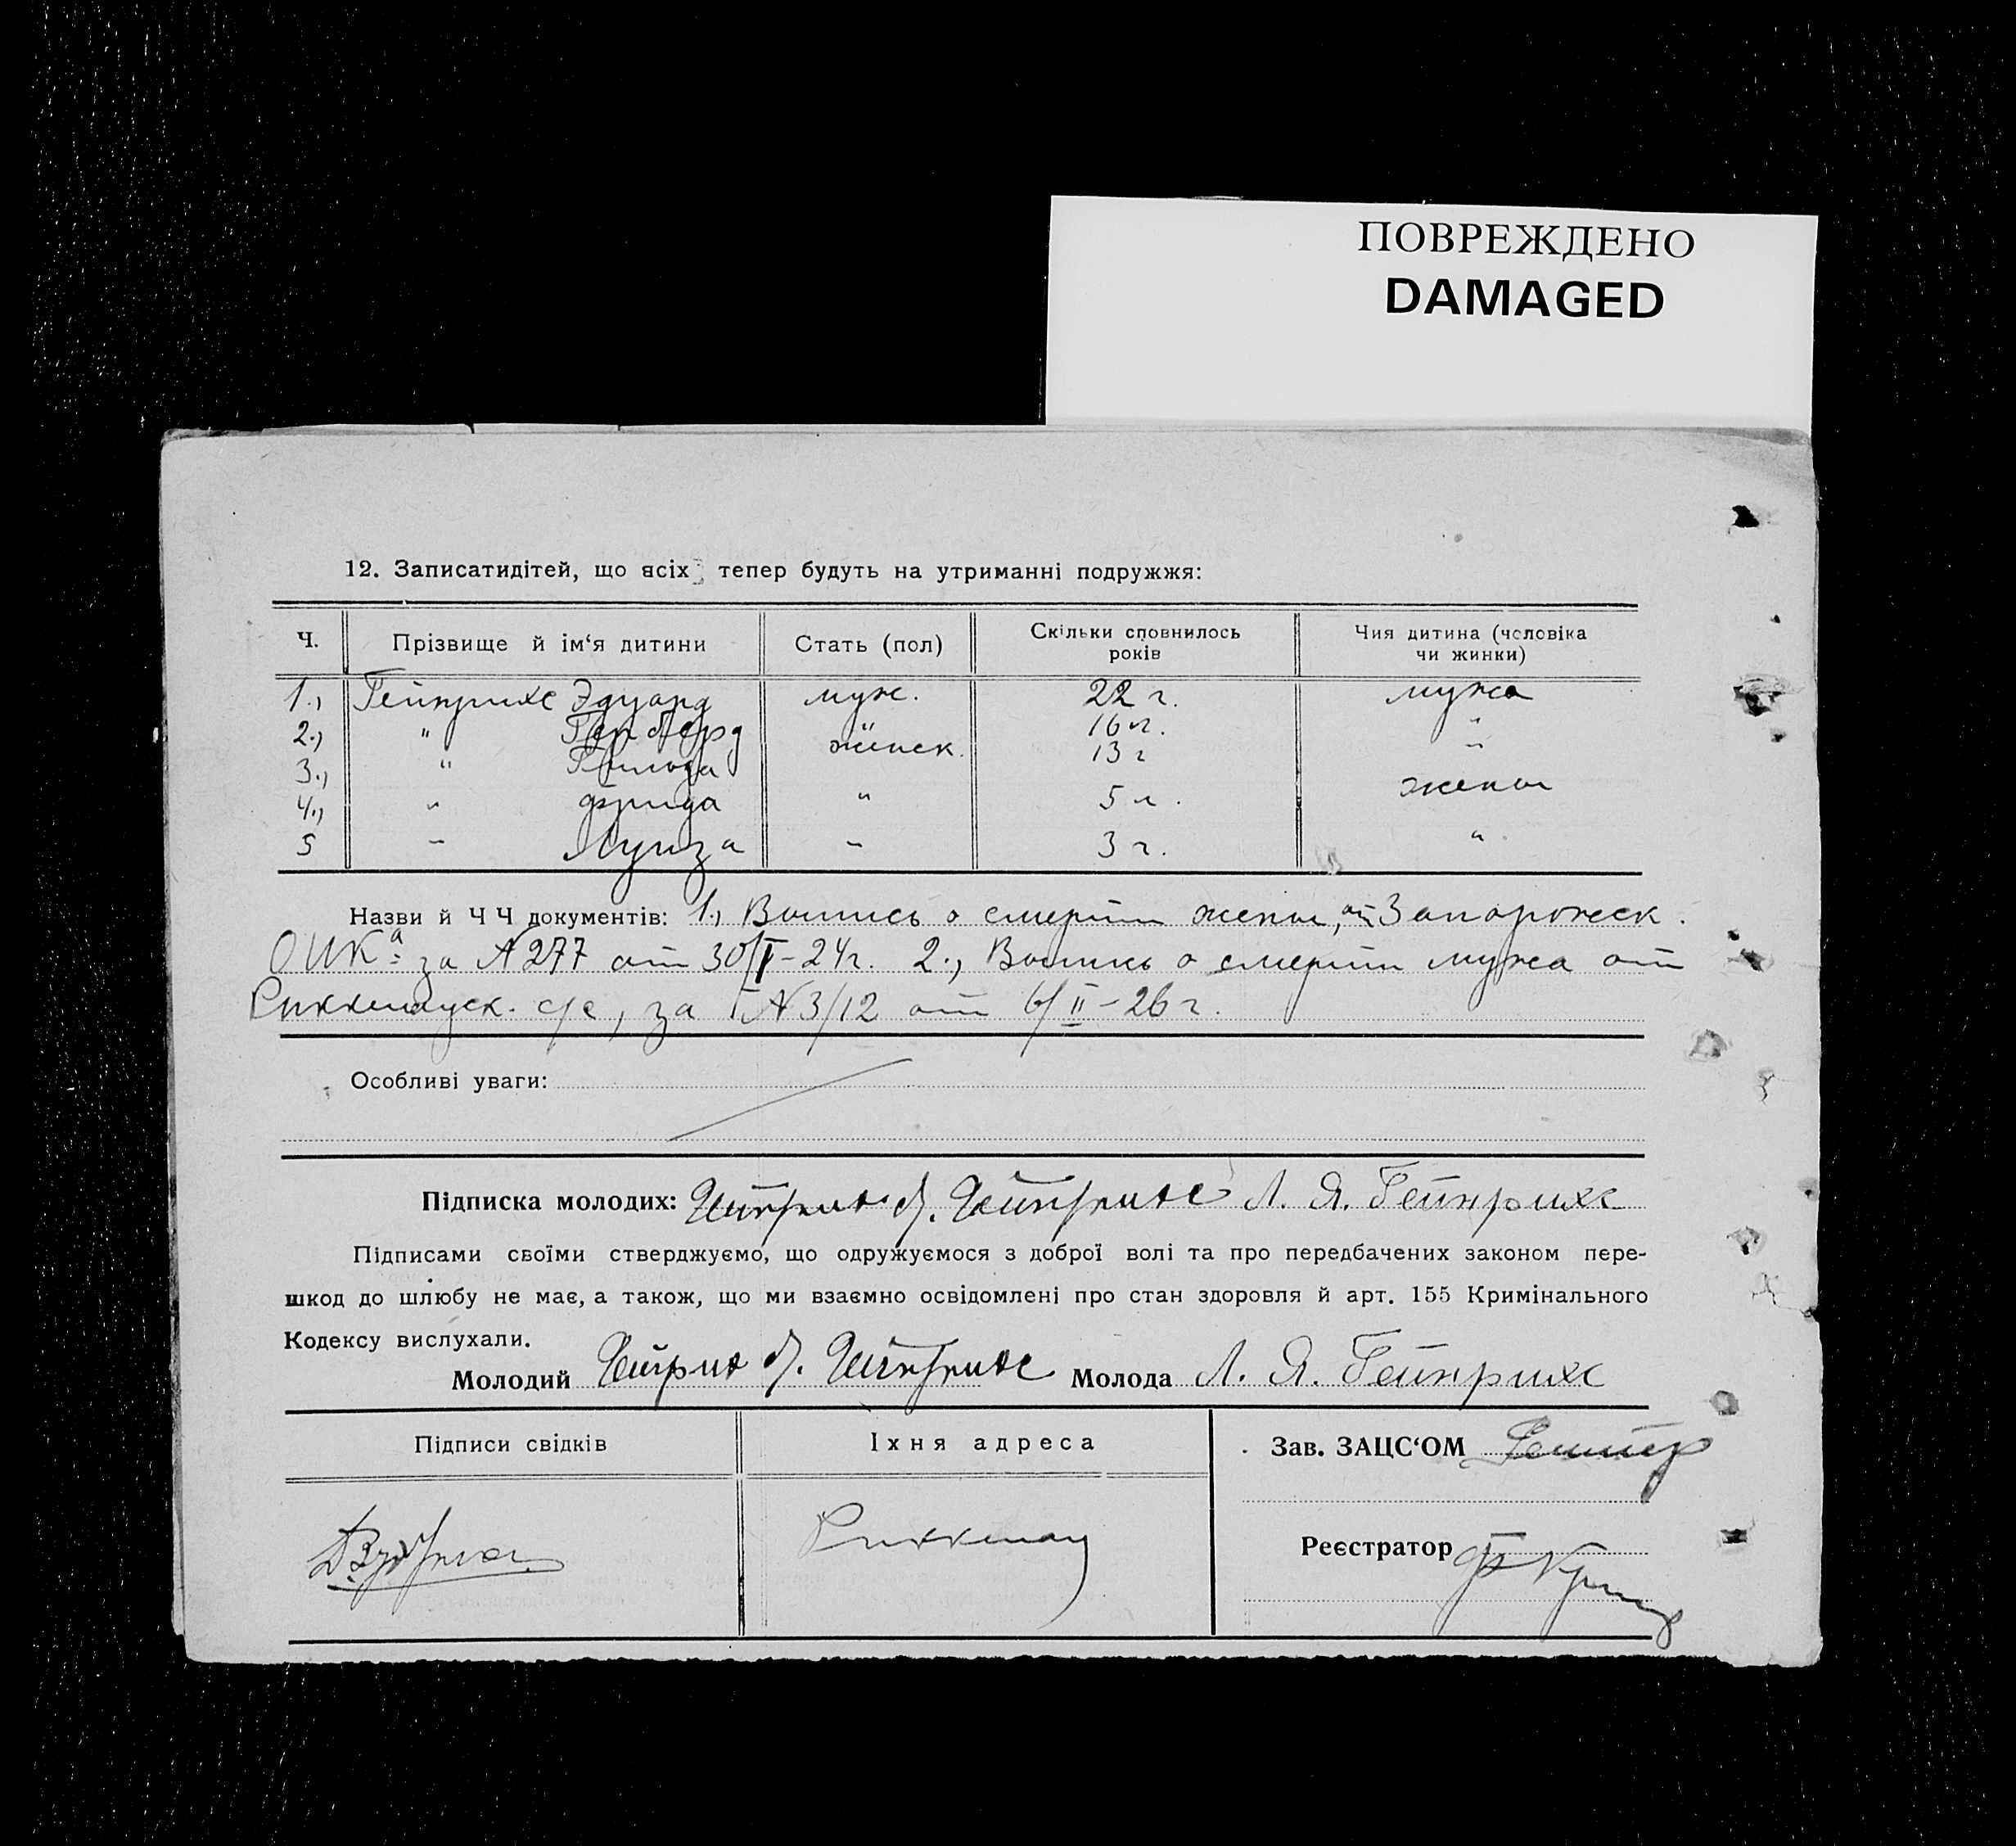 ПОВРЕЖДЕНО
DAMAGED
12. Записатидітей, що всіх тепер будуть на утриманні подружжя:
Ч. Прізвище й ім‘я дитини Стать (пол) Скільки сповнилось років Чия дитина (чоловіка чи жинки)
1., Гейнрихс Эдуард муж. 22 г. мужа
2., " 16 л. "
3., " женск. 13 г "
4., " Фрида " 5 л. жены
5 " Луиза " 3 г. "
Назви й Ч Ч документів: 1., Выпись о смерти жены, от Запорожск.
ОИКа за № 277 от 30/I-24г. 2., Выпись о смерти мужа от
Риккенауск. с/с, за № 3/12 от 6/II-26 г.
Особливі уваги:
Підписка молодих: Гейнрихс Л. Я. Гейнрихс
Підписами своїми стверджуємо, що одружуємося з доброї волі та про передбачених законом пере-
шкод до шлюбу не має, а також, що ми взаємно освідомлені про стан здоровля й арт. 155 Кримінального
Кодексу вислухали.
Молодий Гейнрихс Молода Л. Я. Гейнрихс
Підписи свідків Їхня адреса Зав. ЗАЦС‘ОМ
Риккенау
Реєстратор